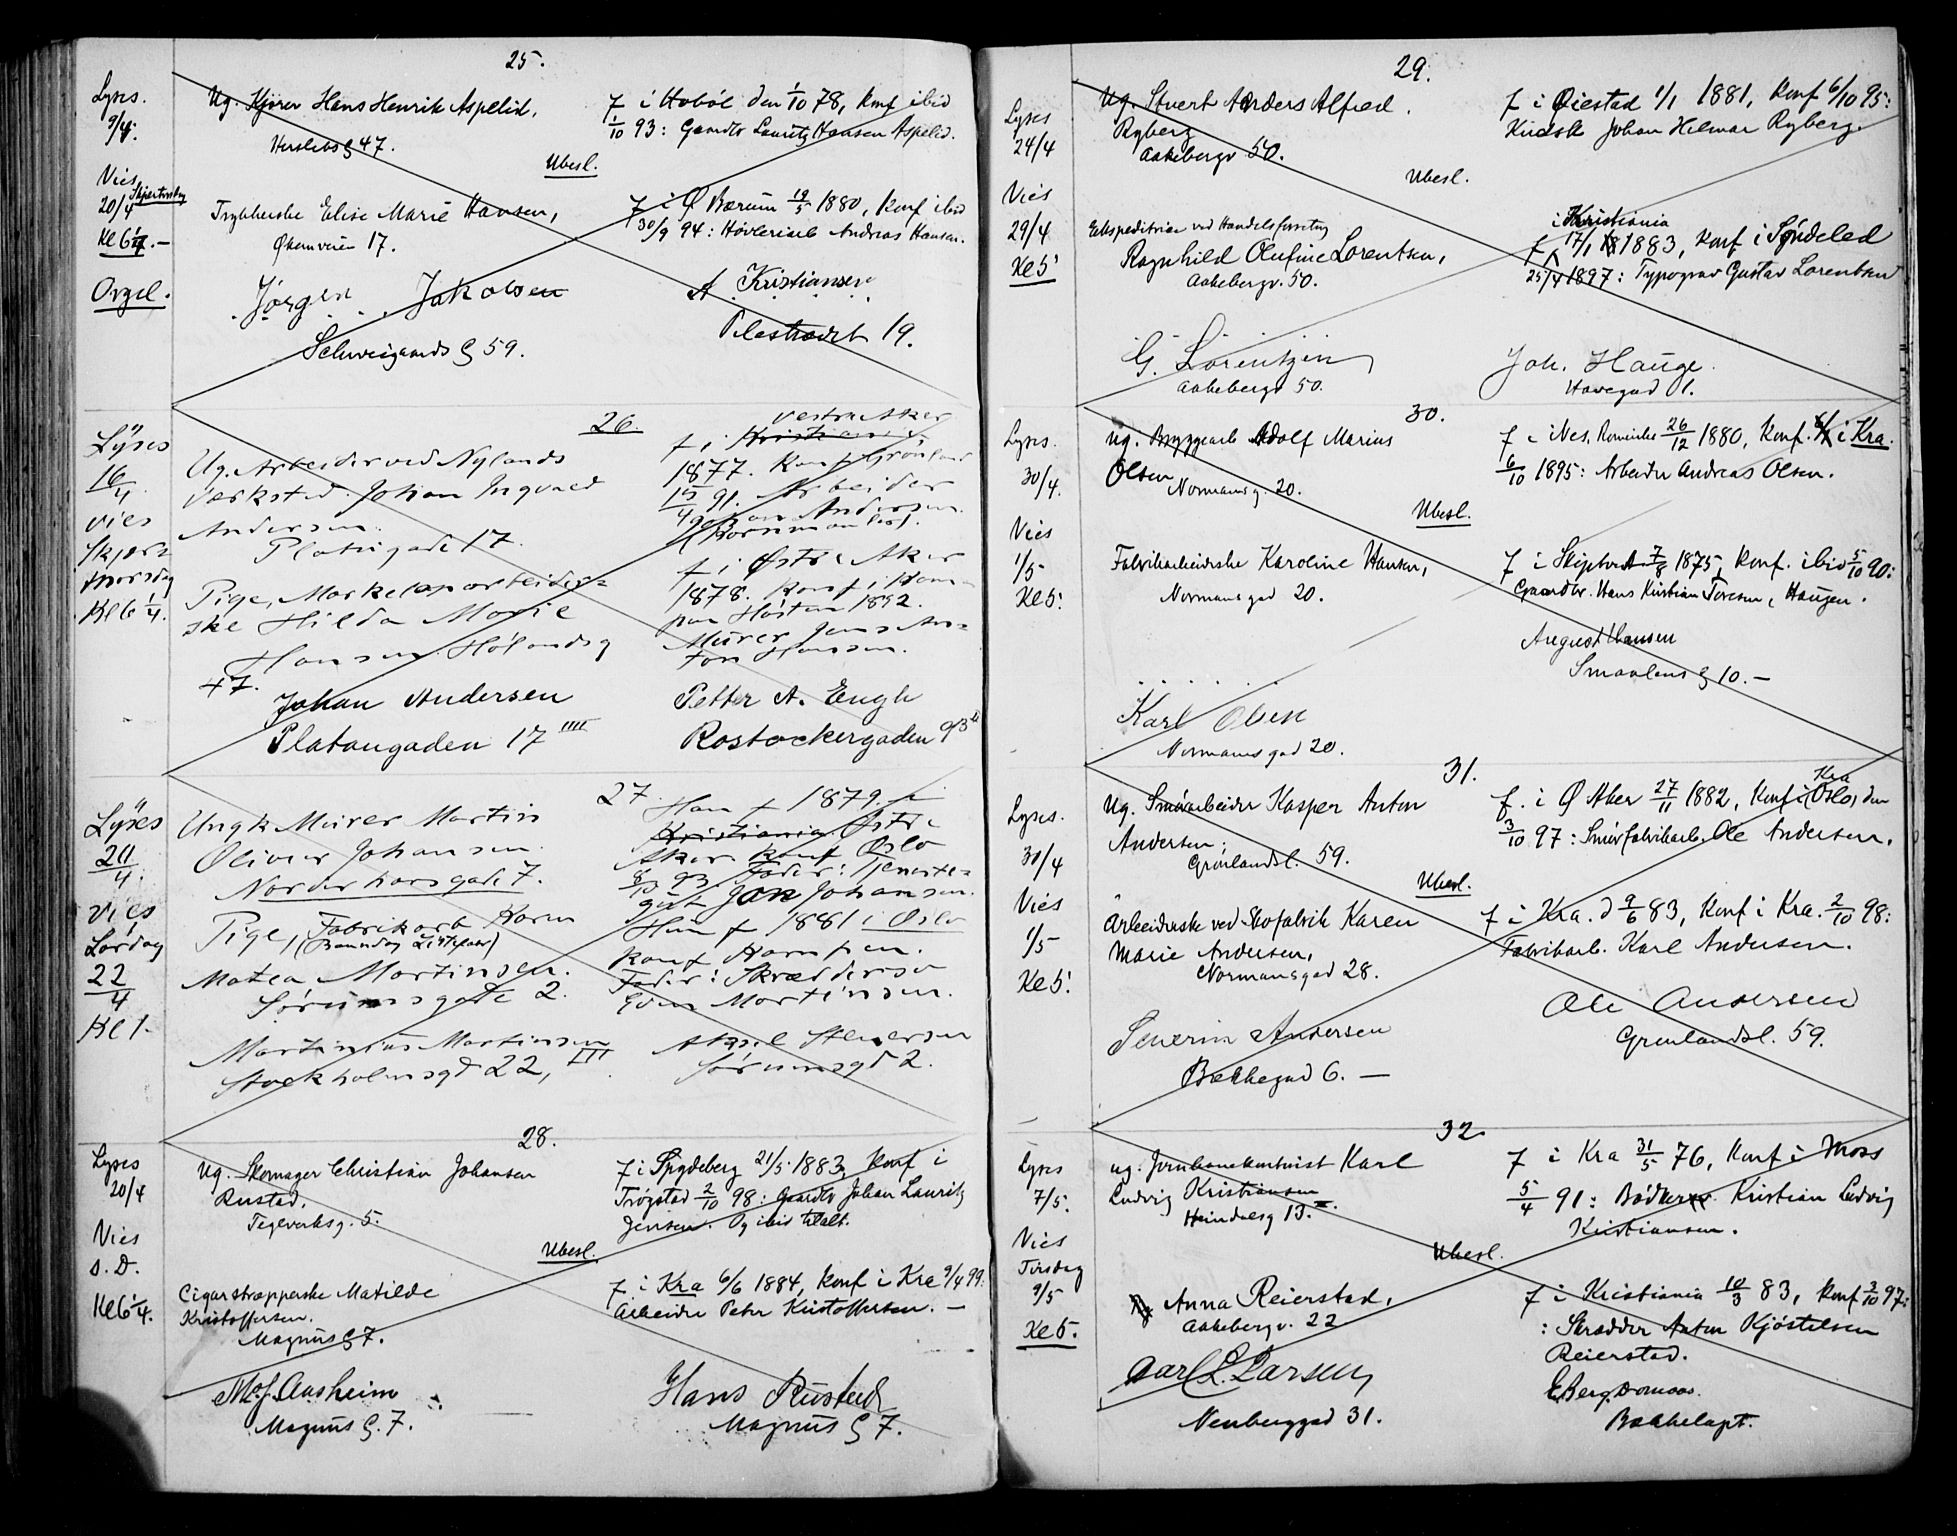 25.
Lyses.
9/4.
Ug. Kjører Hans Henrik Aspelid.
f i Hobøl den 1/10 78, konf ibid
1/10 93: Gaardbr Lauritz Hansen Aspelid.
Herslebs g 47.
Ubesl.
Vies
Skjertorsdag
20/4
Kl 6 1/4.—
Elise Marie Hansen,
f i Ø Bærum 19/5 1880, konf ibid
30/9 94: Høvleriarb Andreas Hansen.
Økernveien 17.
Orgel.
Jørgen Jakobsen
A Kristiansen
Schweigaards g 59.
Pilestrædet 19.
26.
Lyses
16/4.
Vestre Aker
f i Kristiania
Ug. Arbeider ved Nylands
1877. Konf Grønland
Værksted Johan Ingvald
19/4 91. Arbeider
Andersen.
Andersen
Platousgade 17.
vies
Skjær
thorsdag
Kl 6 1/4.
f i Østre Aker
1878. Konf i
Pige,
ske Hilda Marie
paa Høsten 1892.
Hansen. Hølandsg
Murer Jens An=
ton Hansen.
47.
Johan Andersen
Petter A. Engh
Platougaden 17 IIII
Rostockergaden 93
27.
Lyses
20/4.
Ungk Murer Martin
Han f 1879. i
Oliver Johansen.
Kristiania Østre
Aker konf Oslo
Norderhovsgade 7.
8/10 93. Fader: Tjeneste=
gut Jan Johansen.
vies
Lørdag
22/4
Kl 1.
Pige, Fabrikarb Karen
Hun f 1881 i Oslo
Matea Martinsen.
konf Kampen.
Sørumsgade 2.
Fader: Skrædersv
Even Martinsen.
Martinius Martinsen
Aksel Stenersen
Stockholmsgd 22, III
Sørumsgd 2.
28.
Lyses
20/4
Ug. Skomager Christian Johansen
f i Spydeberg 21/5 1883, konf i
Rustad.
Trøgstad 2/10 98: Gaardbr Johan Lauritz
Teglverksg. 5.
Jensen. Og ibid tilalt.
Ubesl.
Vies
s. D.
Kl 6 1/4.
Cigarstrapperske Matilde
f i Kra 6/6 1884, konf i Kra 9/4 99:
Kristoffersen.
Arbeider Peter Kristoffersen. —
Magnus g 7.
Hans Rustad
Magnus g. 7.
Magnus g 7.
29.
Lyses
24/4
Ug. Stuert Anders Alfred.
f i Øiestad 1/1 1881, konf 6/10 95:
Ryberg
Kudsk Johan Hilmar Ryberg.
Aakebergv 50.
Ubesl.
Vies
29/4
Kl 5
Ekspeditrice ved Handelsforretng
i Kristiania
f 17/1 1883, konf i Søndeled
Ragnhild Olufine Lorentsen,
25/4 1897: Typograv Gustav Lorentsen
Aakebergv. 50.
G. Lorentzen
Joh. Hauge.
Aakebergv 50.
Havegad 1.
30.
Lyses.
30/4.
Ug. Bryggearb Adolf Marius
f i Nes, Romerike 26/12 1880, konf. i Kra.
Olsen
6/10 1895: Arbeider Andreas Olsen.
Normansg. 20.
Ubesl.
Vies
1/5
Kl 5.
Fabrikarbeiderske Karoline Hansen,
f i Skiptvedt 7/8 1875, konf. ibid 5/10 90:
Normansgad 20.
Gaardbr. Hans Kristian Toresen, Haugen.
August Hansen
Smaalens g 10.—
Karl Olsen
Normansgad 20.
31.
Lyses.
30/4
Ug. Smørarbeider Kasper Anton
Kra
f. i Ø Aker 27/11 1882, konf i Oslo, den
Andersen,
3/10 97: Smørfabrikarb. Ole Andersen.
Grønlandsl. 59.
Ubesl.
Vies
1/5
Kl 5.
Arbeiderske ved Skofabrik Karen
f i Kra. d 9/6 83, konf i Kra. 2/10 98:
Marie Andersen,
Fabrikarb. Karl Andersen.
Normansgad 28.
Severin Andersen
Ole Andersen
Bakkegad 6. —
Grønlandsl. 59.
32
Lyses
7/5.
Ug. Jernbanekontorist Karl
f i Kra 31/5 76, konf i Moss
Ludvig Kristiansen
5/4 91: Bødker Kristian Ludvig
Heimdalsg 13.
Kristiansen.
Ubesl.
Vies
Tirsdag
9/5
Kl 5.
Anna Reierstad,
f i Kristiania 10/3 83, konf 3/10 97:
Aakebergv. 22
: Skrædder Anton Kjøstelsen
Reierstad.
Carl L. Larsen
E Berg
Neuberggad 31.